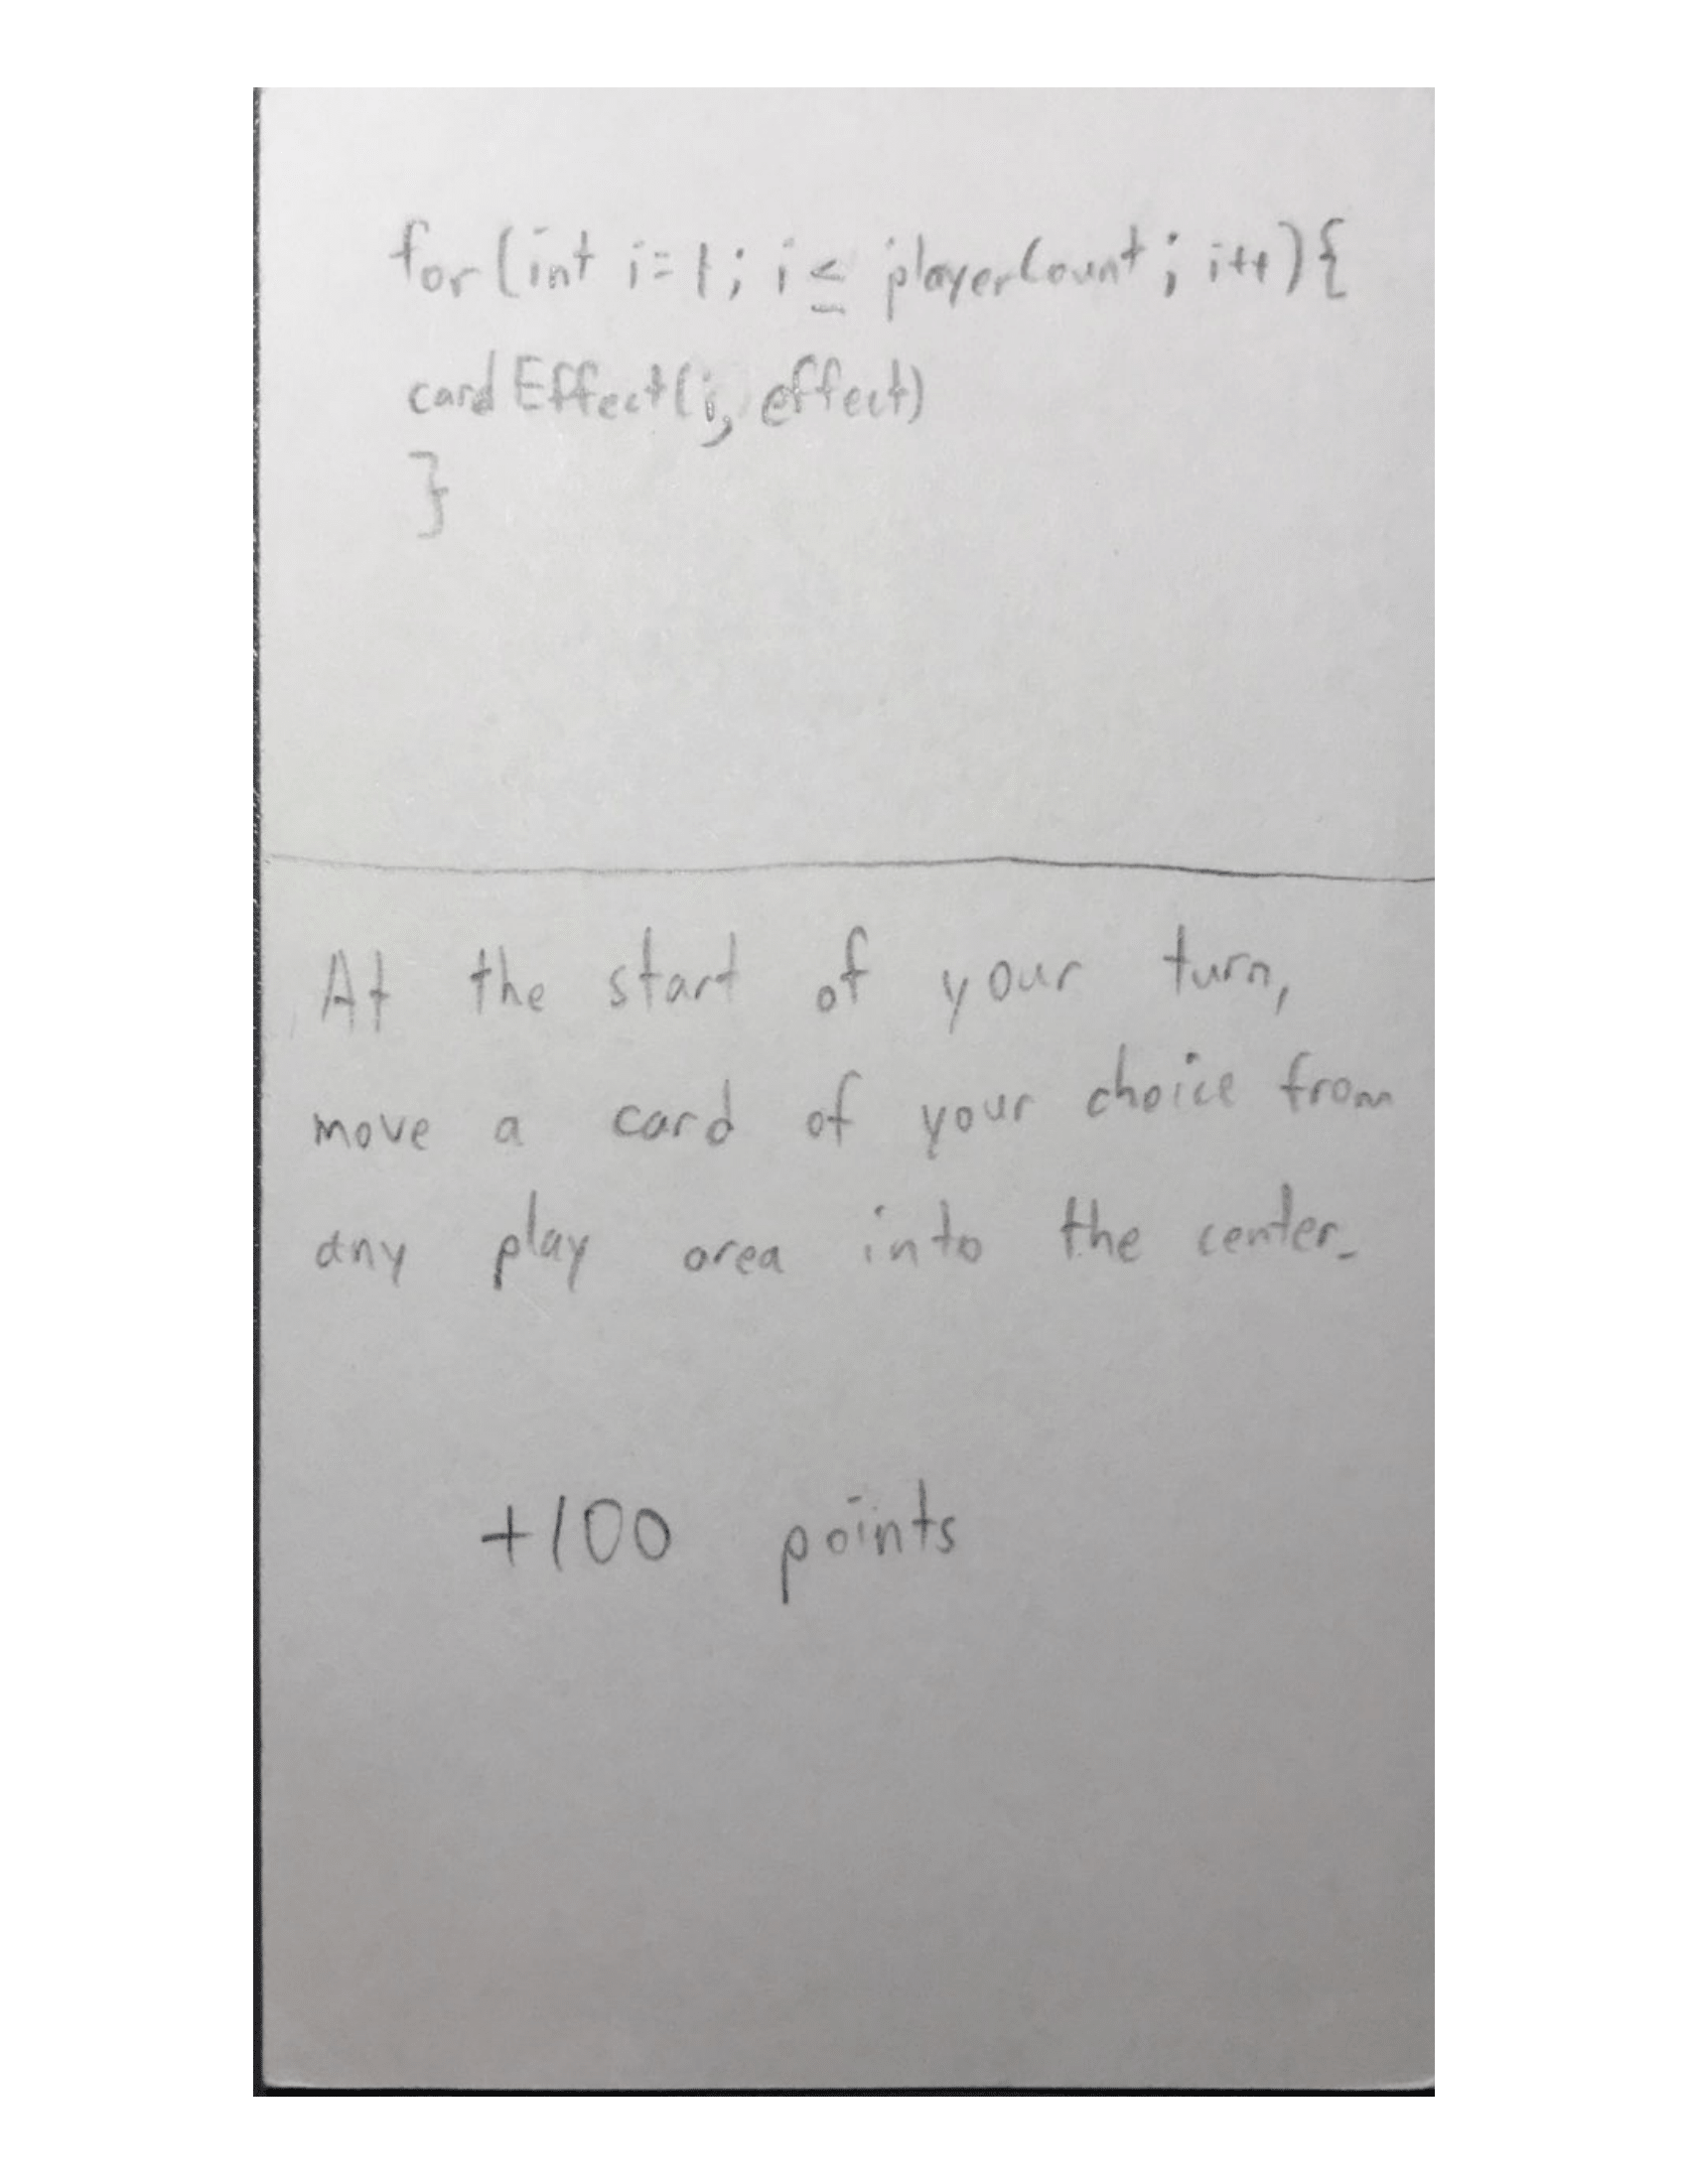 for(int i=1; i≤ playerCount; i++){
cardEffect(i, effect)
}
At the start of your turn,
move a card of your choice from
any play area into the center.
+100 points